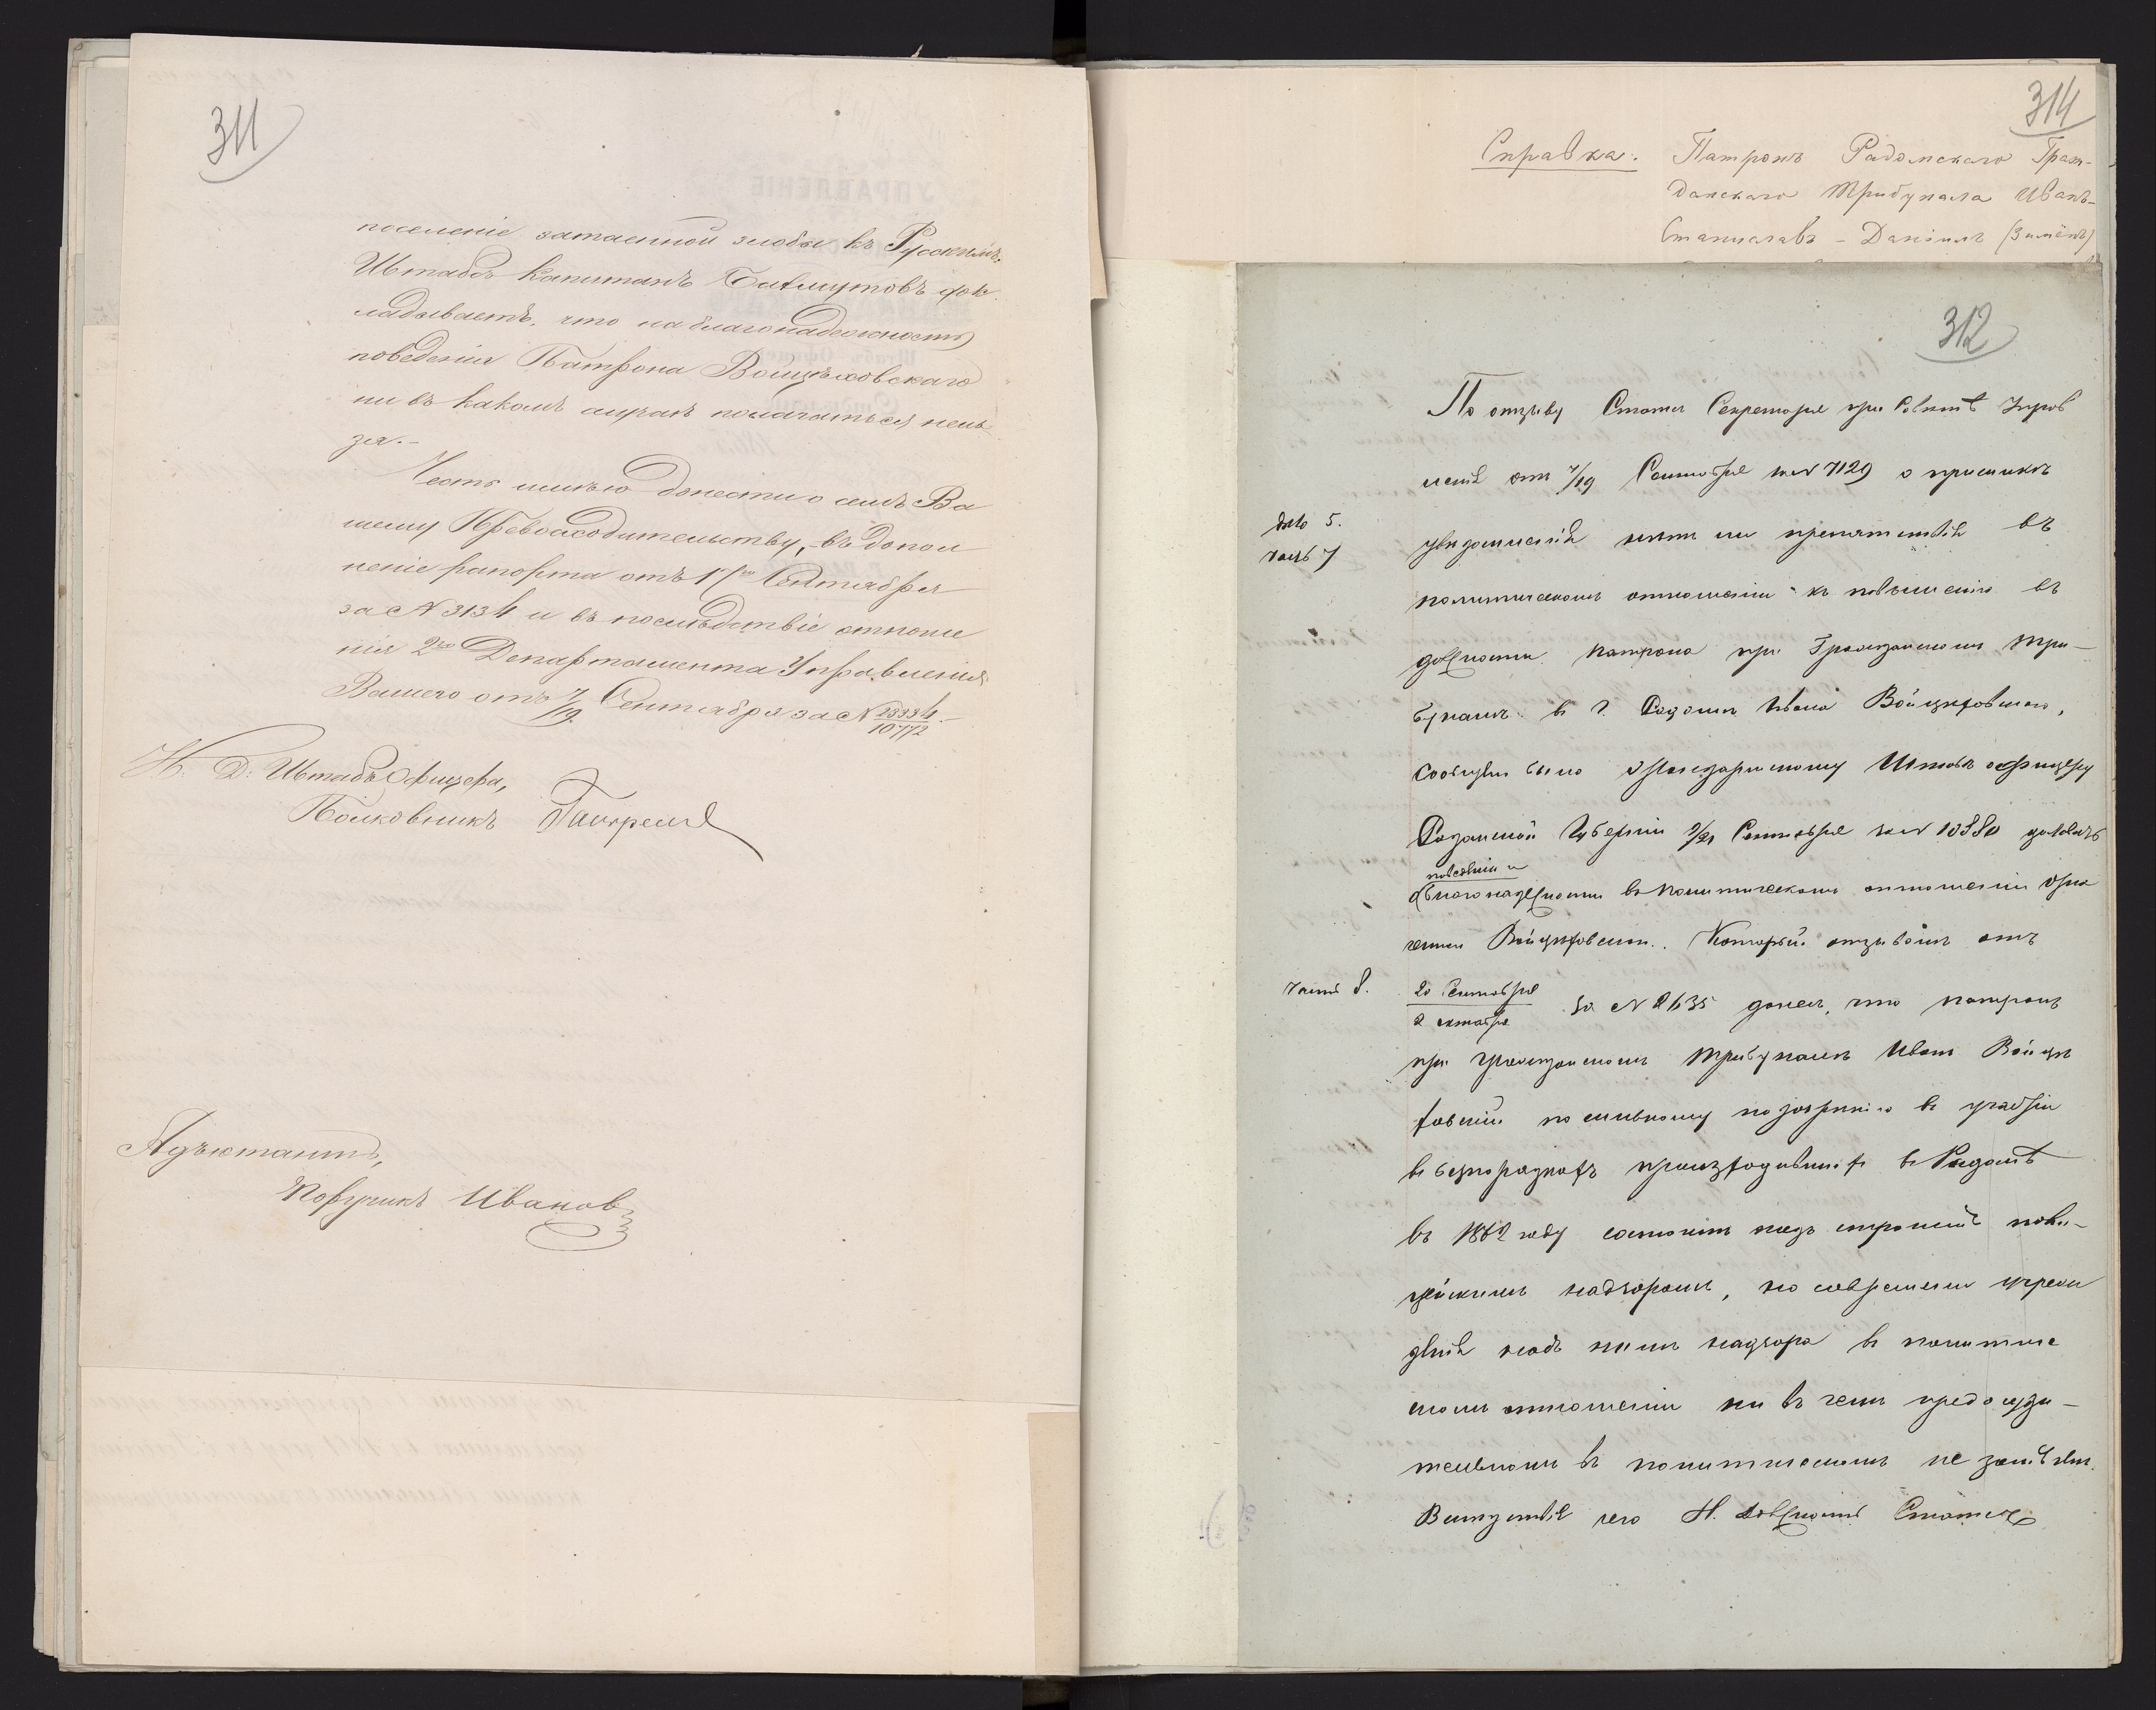 311
поселеніе затаенной злобы къ Русскимъ.
Штабсъ Капитанъ докладываетъ, что на благонадежность
поведенія Патрона Войцѣховскаго
ни въ какомъ случаѣ полагаться нель
зя.-
Честь имѣю донести о семъ Ва
шему Превосходительству, въ допол
неніе рапорта отъ 17го Сентября
за № 3134 и въ послѣдствіе отноше
нія 2го Департамента Управленія
Вашего отъ 7/19 Сентября за № 23334/10772.-
Н. Д. Штабъ Офицера,
Полковникъ
Адъютантъ,
Поручикъ Иванов
314
Справка. Патронъ Радомскаго Граж-
данскаго Трибунала Иванъ-
Станиславъ - Даніилъ
312
По отзыву Статсъ Секретаря при Совѣтѣ Управ
ленія отъ 7/19 Сентября за № 7129 о присылкѣ
5.
7 увѣдомленія нѣтъ ли препятствія въ
политическомъ отношеніи къ повышенію въ
должности патрона при Гражданскомъ Три-
буналѣ въ г. Радомѣ Ивана Войцѣховскаго,
сообщено было Жандармскому Штабъ офицеру
Радомской Губерніи 9/21 Сентября за № 10880
поведеніи и
благонадежности въ политическомъ отношеніи озна
ченнаго Войцѣховскаго. Который отзывомъ отъ
8. 20 Сентября / 2 октября за № 2635 донес, что патронъ
при Гражданскомъ Трибуналѣ Иванъ Войцѣ
ховскій по сильному подозрѣнію въ участіи
въ безпорядкахъ происходившихъ въ Радомѣ
въ 1862 году состоитъ подъ строгимъ поли-
цейскимъ надзоромъ, но со времени учреж
денія надъ нимъ надзора въ политиче
скомъ отношеніи ни въ чемъ предосуди-
тельномъ въ политическомъ не замѣченъ.
Вслѣдствіе чего И. должность Статсъ